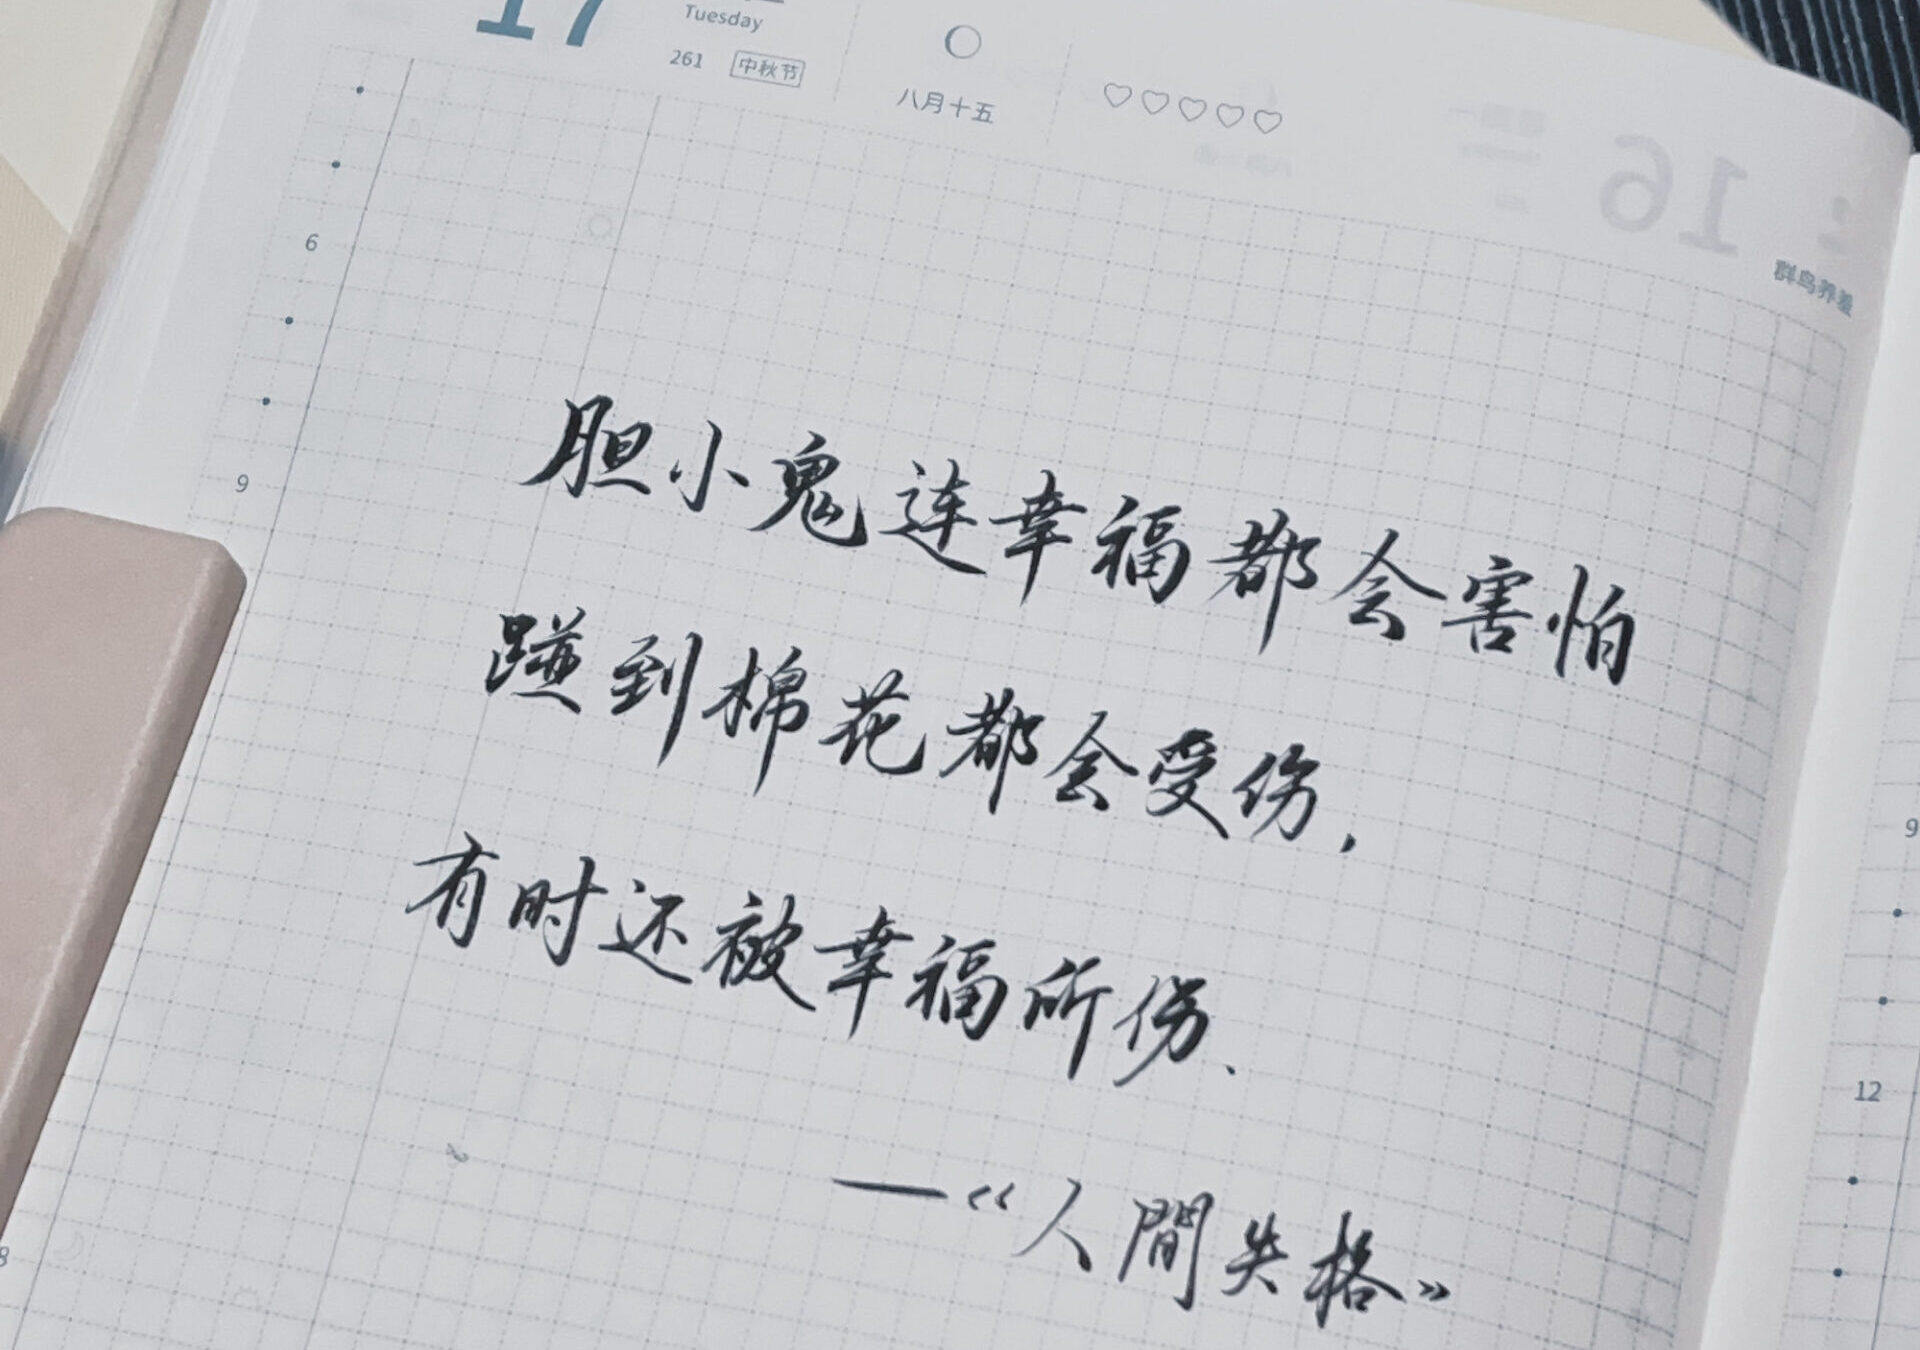 17
Tuesday
261 中秋节
八月十五
16
群鸟养羞
6
9
胆小鬼连幸福都会害怕
踫到棉花都会受伤,
有时还被幸福所伤、
—《人間失格》
8
9
12